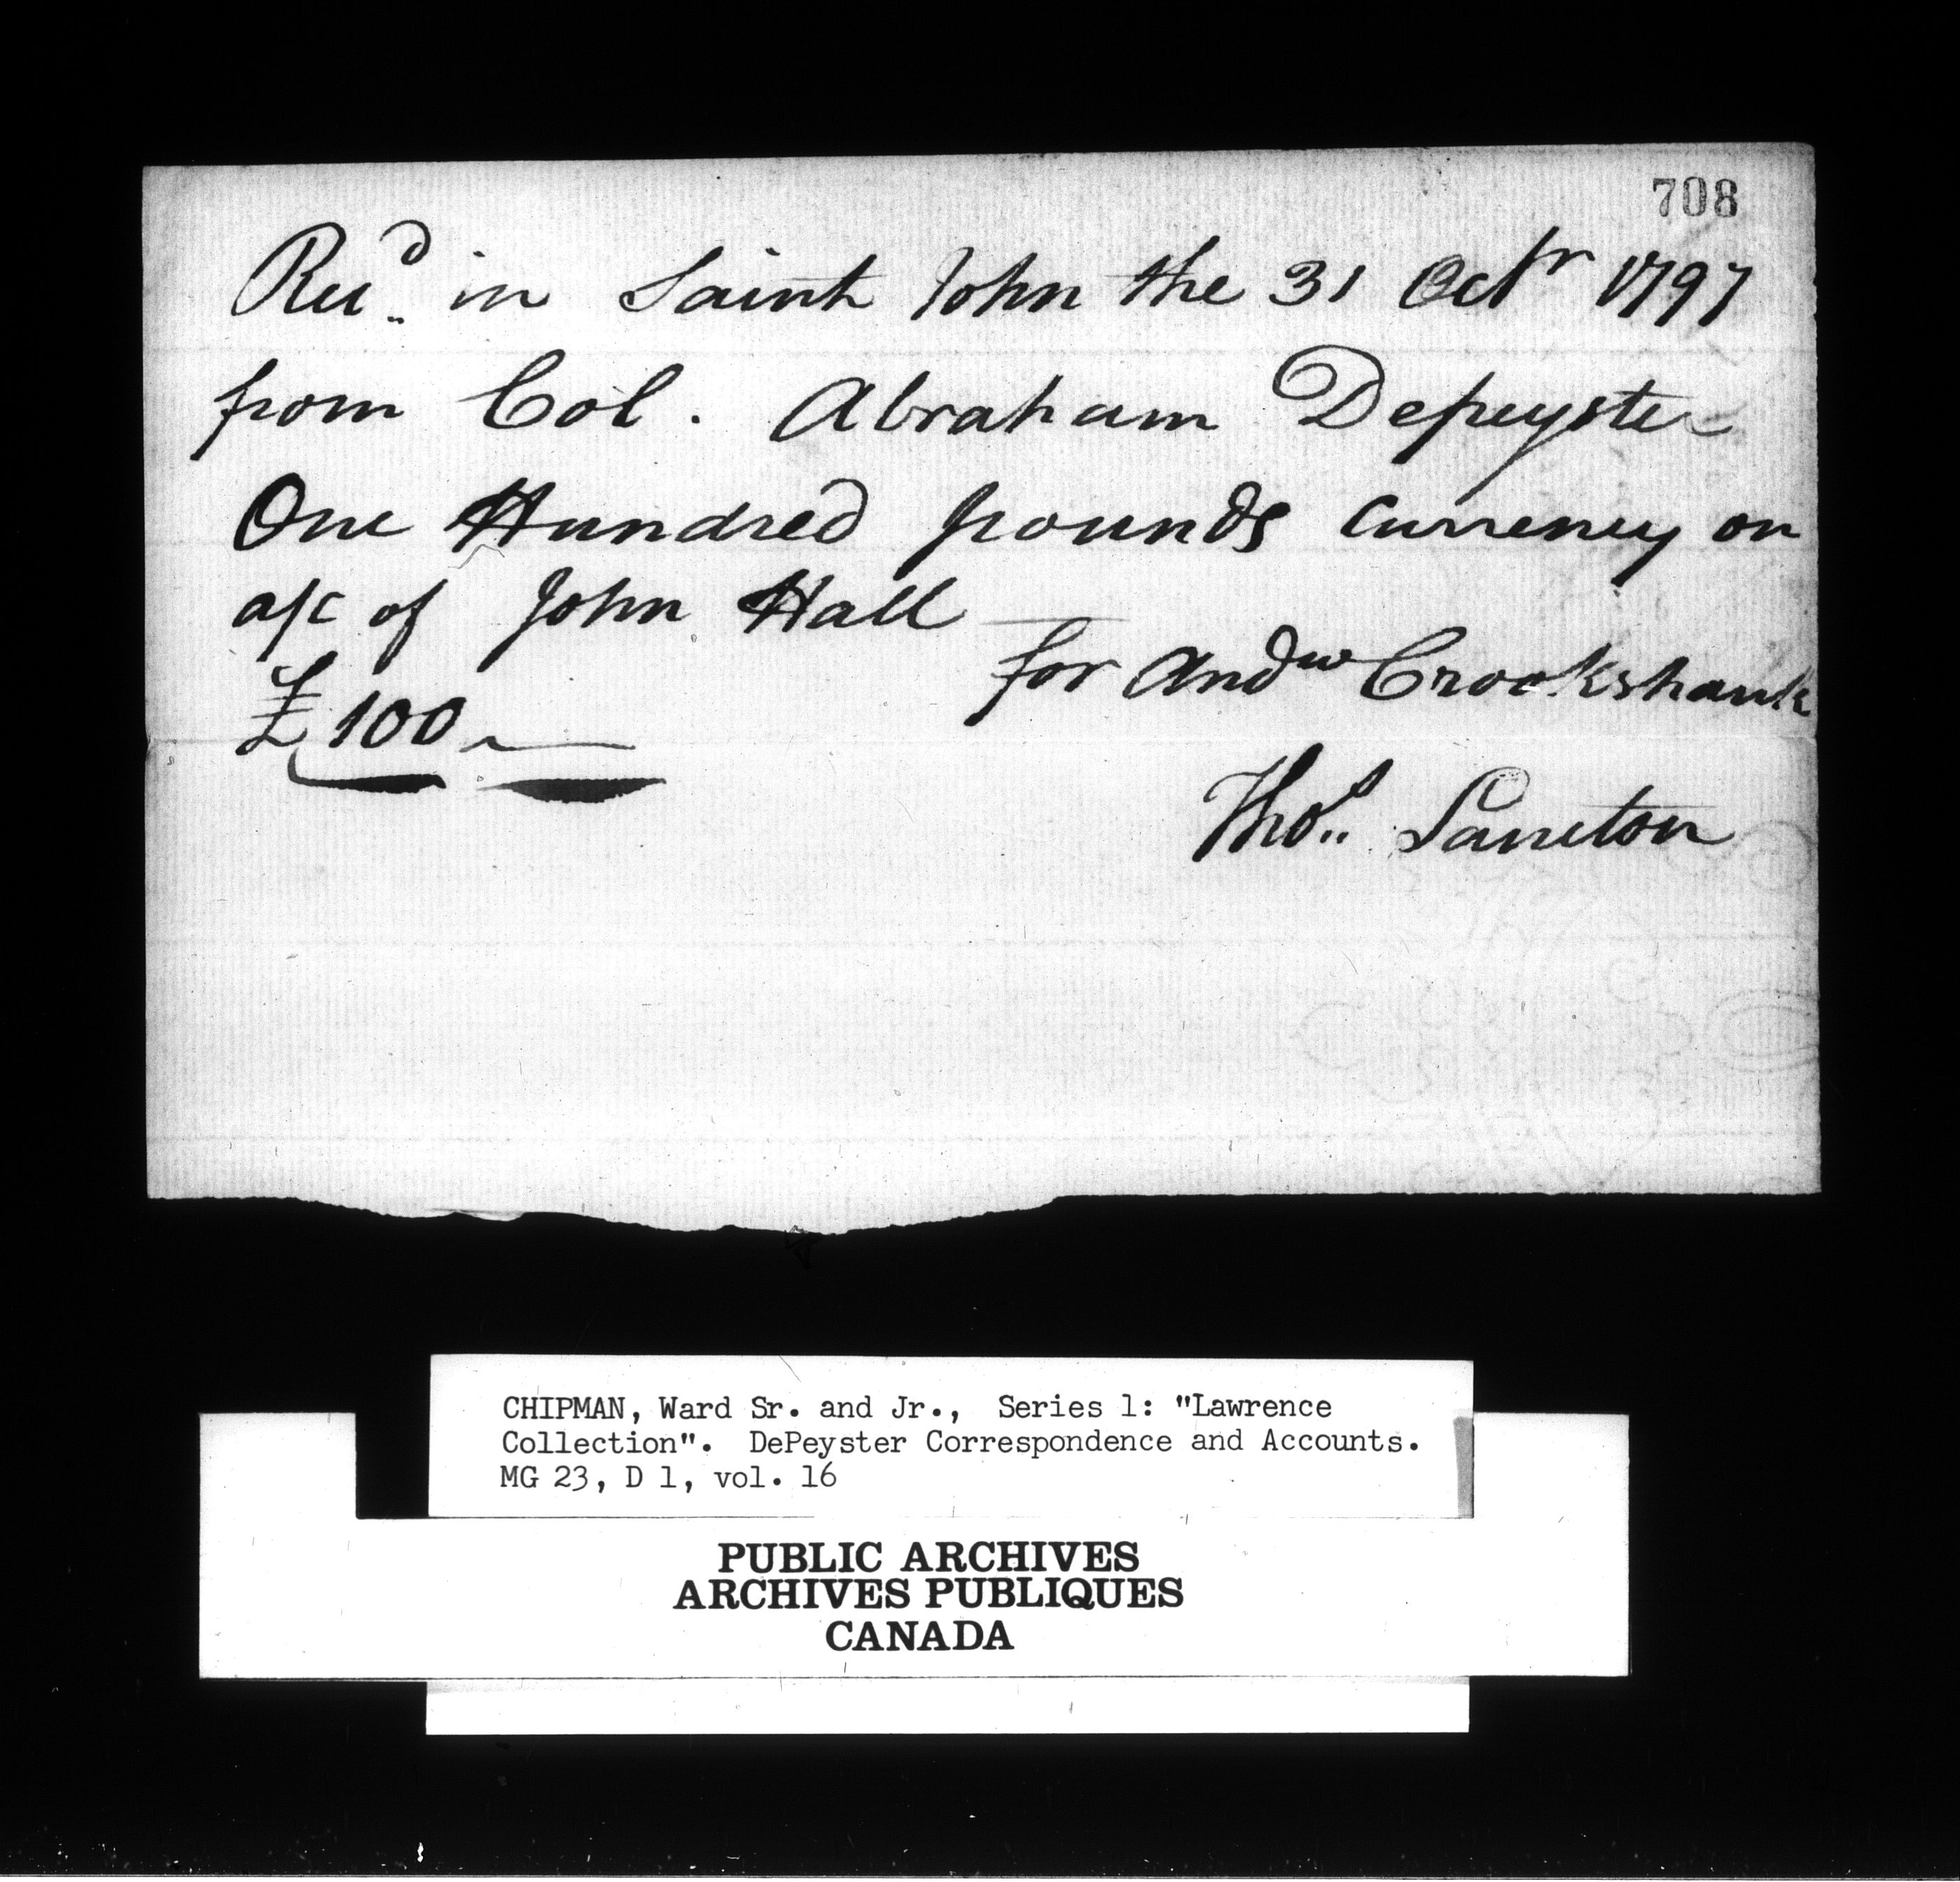 708
Recd in Saint John the 31 Octr 1797
from Col. Abraham Depeyster
One Hundred pounds Currency on
a/c of John Hall
for Andw Crookshank
£100
Thos
CHIPMAN, Ward Sr. and Jr., Series 1: "Lawrence
Collection". DePeyster Correspondence and Accounts.
MG 23, D 1, vol. 16
PUBLIC ARCHIVES
ARCHIVES PUBLIQUES
CANADA